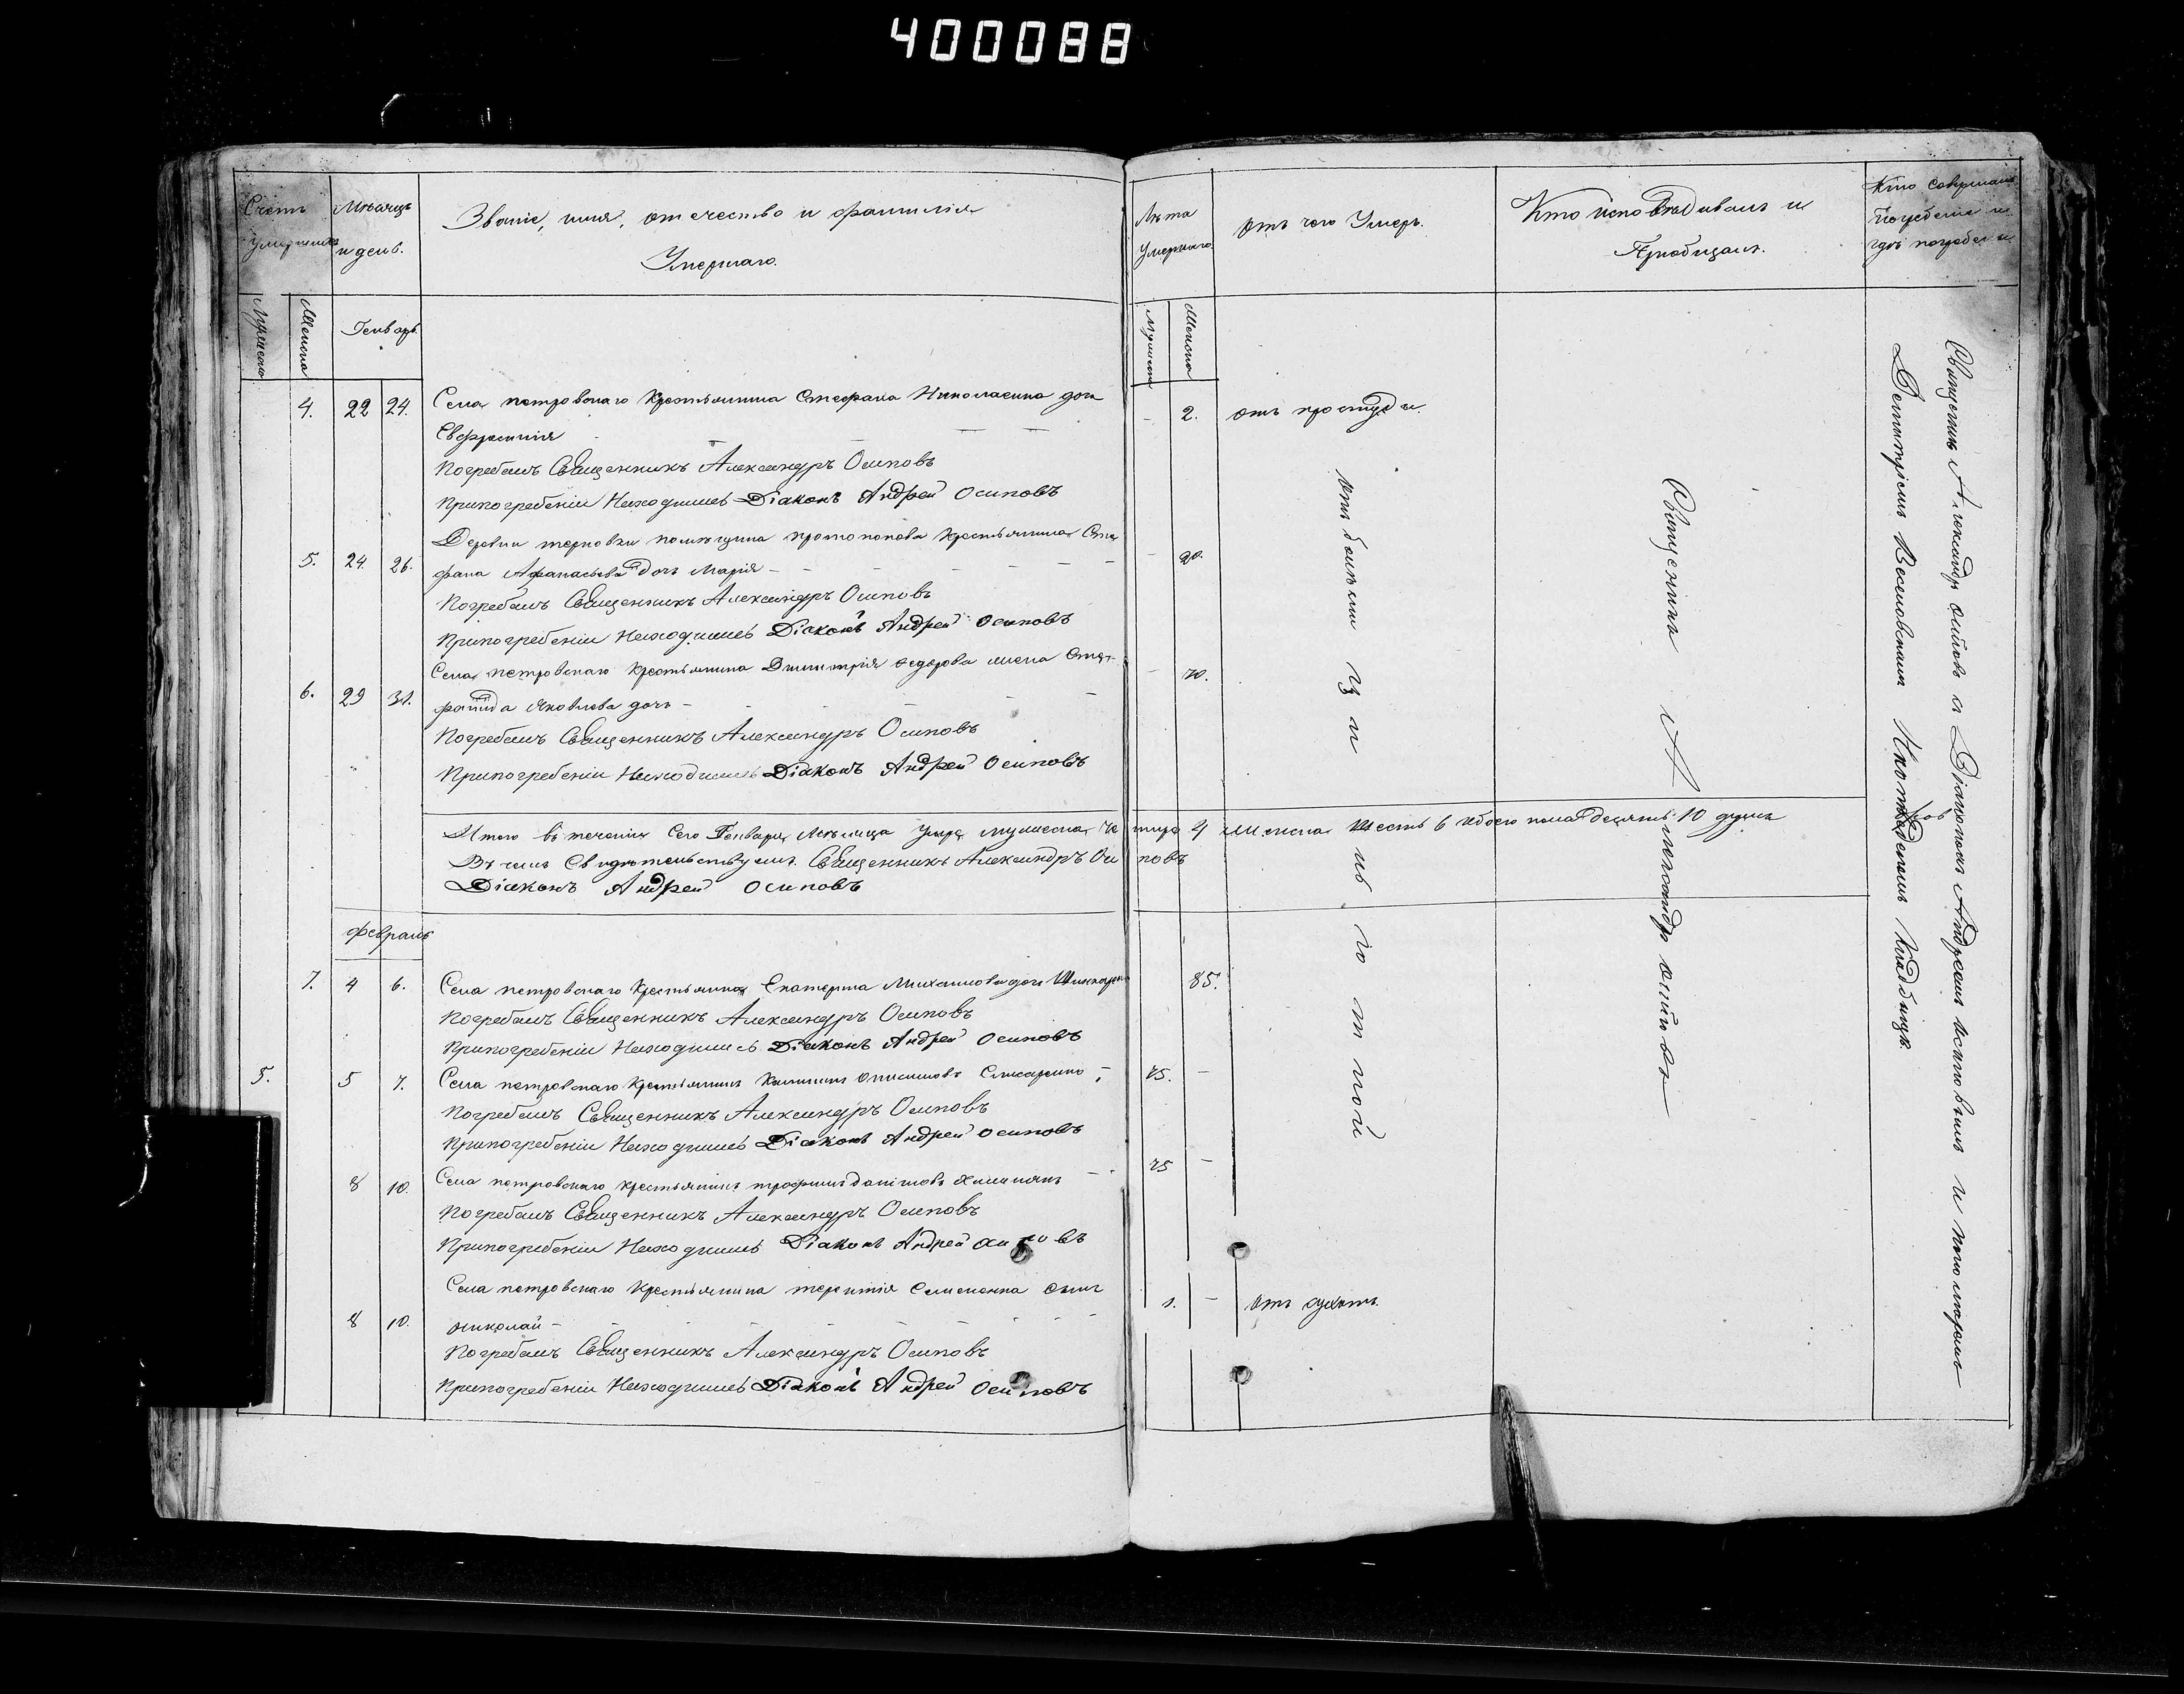 400088
Счетъ умершихъ
Мѣсяцъ и день.
Званіе, имя, отчество и фамилія
Умершаго.
Лѣта Умершаго.
Отъ чего Умеръ.
Кто исповѣдывалъ и
Пріобщалъ.
Кто совершалъ
погребеніе и
гдѣ погребены
Мужеска
Женска
Генварь
Мужеска
Женска
4. 22 24. Села петровскаго крестьянина Стефана дочь
Евфросинія
- 2. отъ простуды.
Погребалъ Священникъ Александръ Осиповъ
Припогребеніи Находился Діаконъ Андрей Осиповъ
Деревни помѣщика протопопова крестьянина Сте
5. 24. 26. фана Афанасьева дочь Марія -
- 20.
Погребалъ Священникъ Александръ Осиповъ
Припогребеніи Находился Діаконъ Андрей Осиповъ
Села петровскаго крестьянина Димитрія Федорова жена
6. 29 31. Яковлева дочь -
- 70.
Погребалъ Священникъ Александръ Осиповъ
Припогребеніи Находился Діаконъ Андрей Осиповъ
Итого въ теченіи Сего Генваря Мѣсяца умре мужеска че тире 4 женска шесть 6 обоего пола десять 10 душъ
Въ чемъ Свидѣтельствуемъ. Священникъ Александръ Оси повъ
Діаконъ Андрей Осиповъ
Февраль
7. 4 6. Села петровскаго Екатерина Михаилова дочь
85.
Погребалъ Священникъ Александръ Осиповъ
Припогребеніи Находился Діаконъ Андрей Осиповъ
5. 5 7. Села петровскаго крестьянинъ
75. -
Погребалъ Священникъ Александръ Осиповъ
Припогребеніи Находился Діаконъ Андрей Осиповъ
8 10. Села петровскаго крестьянинъ трофимъ даниловъ
75 -
Погребалъ Священникъ Александръ Осиповъ
Припогребеніи Находился Діаконъ Андрей Осиповъ
Села петровскаго крестьянина терентія сынъ
8 10. николай -
1. - отъ сухотъ.
Погребалъ Священникъ Александръ Осиповъ
Припогребеніи Находился Діаконъ Андрей Осиповъ
Священникъ Александръ Осиповъ
Священникъ Александръ Осиповъ съ Діакономъ Андреемъ Осиповымъ и пономаремъ
Димитріемъ